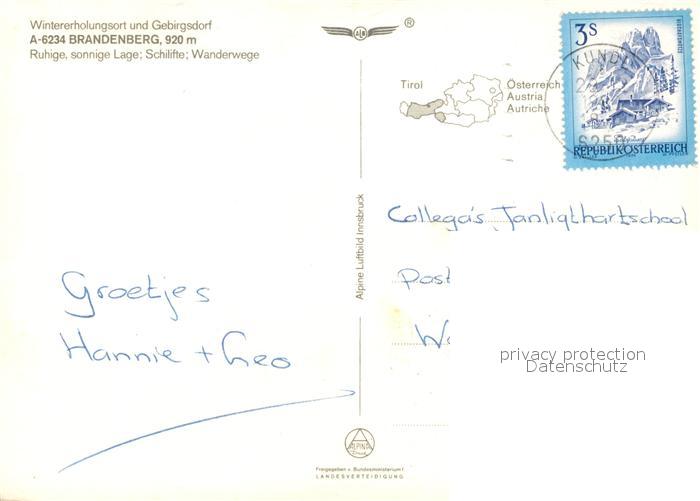 Wintererholungsort und Gebirgsdorf
A-6234 BRANDENBERG, 920 m
Ruhige, sonnige Lage; Schilifte; Wanderwege
®
Tirol
Österreich
Austria
Autriche
3S
KUNDL
REPUBLIK ÖSTERREICH
Alpine Luftbild Innsbruck
Collega's Janligthartschool
Post
Groetjes
Hannie + Geo
privacy protection
Datenschutz
ALPINA
Freigegeben v. Bundesministerium f.
LANDESVERTEIDIGUNG